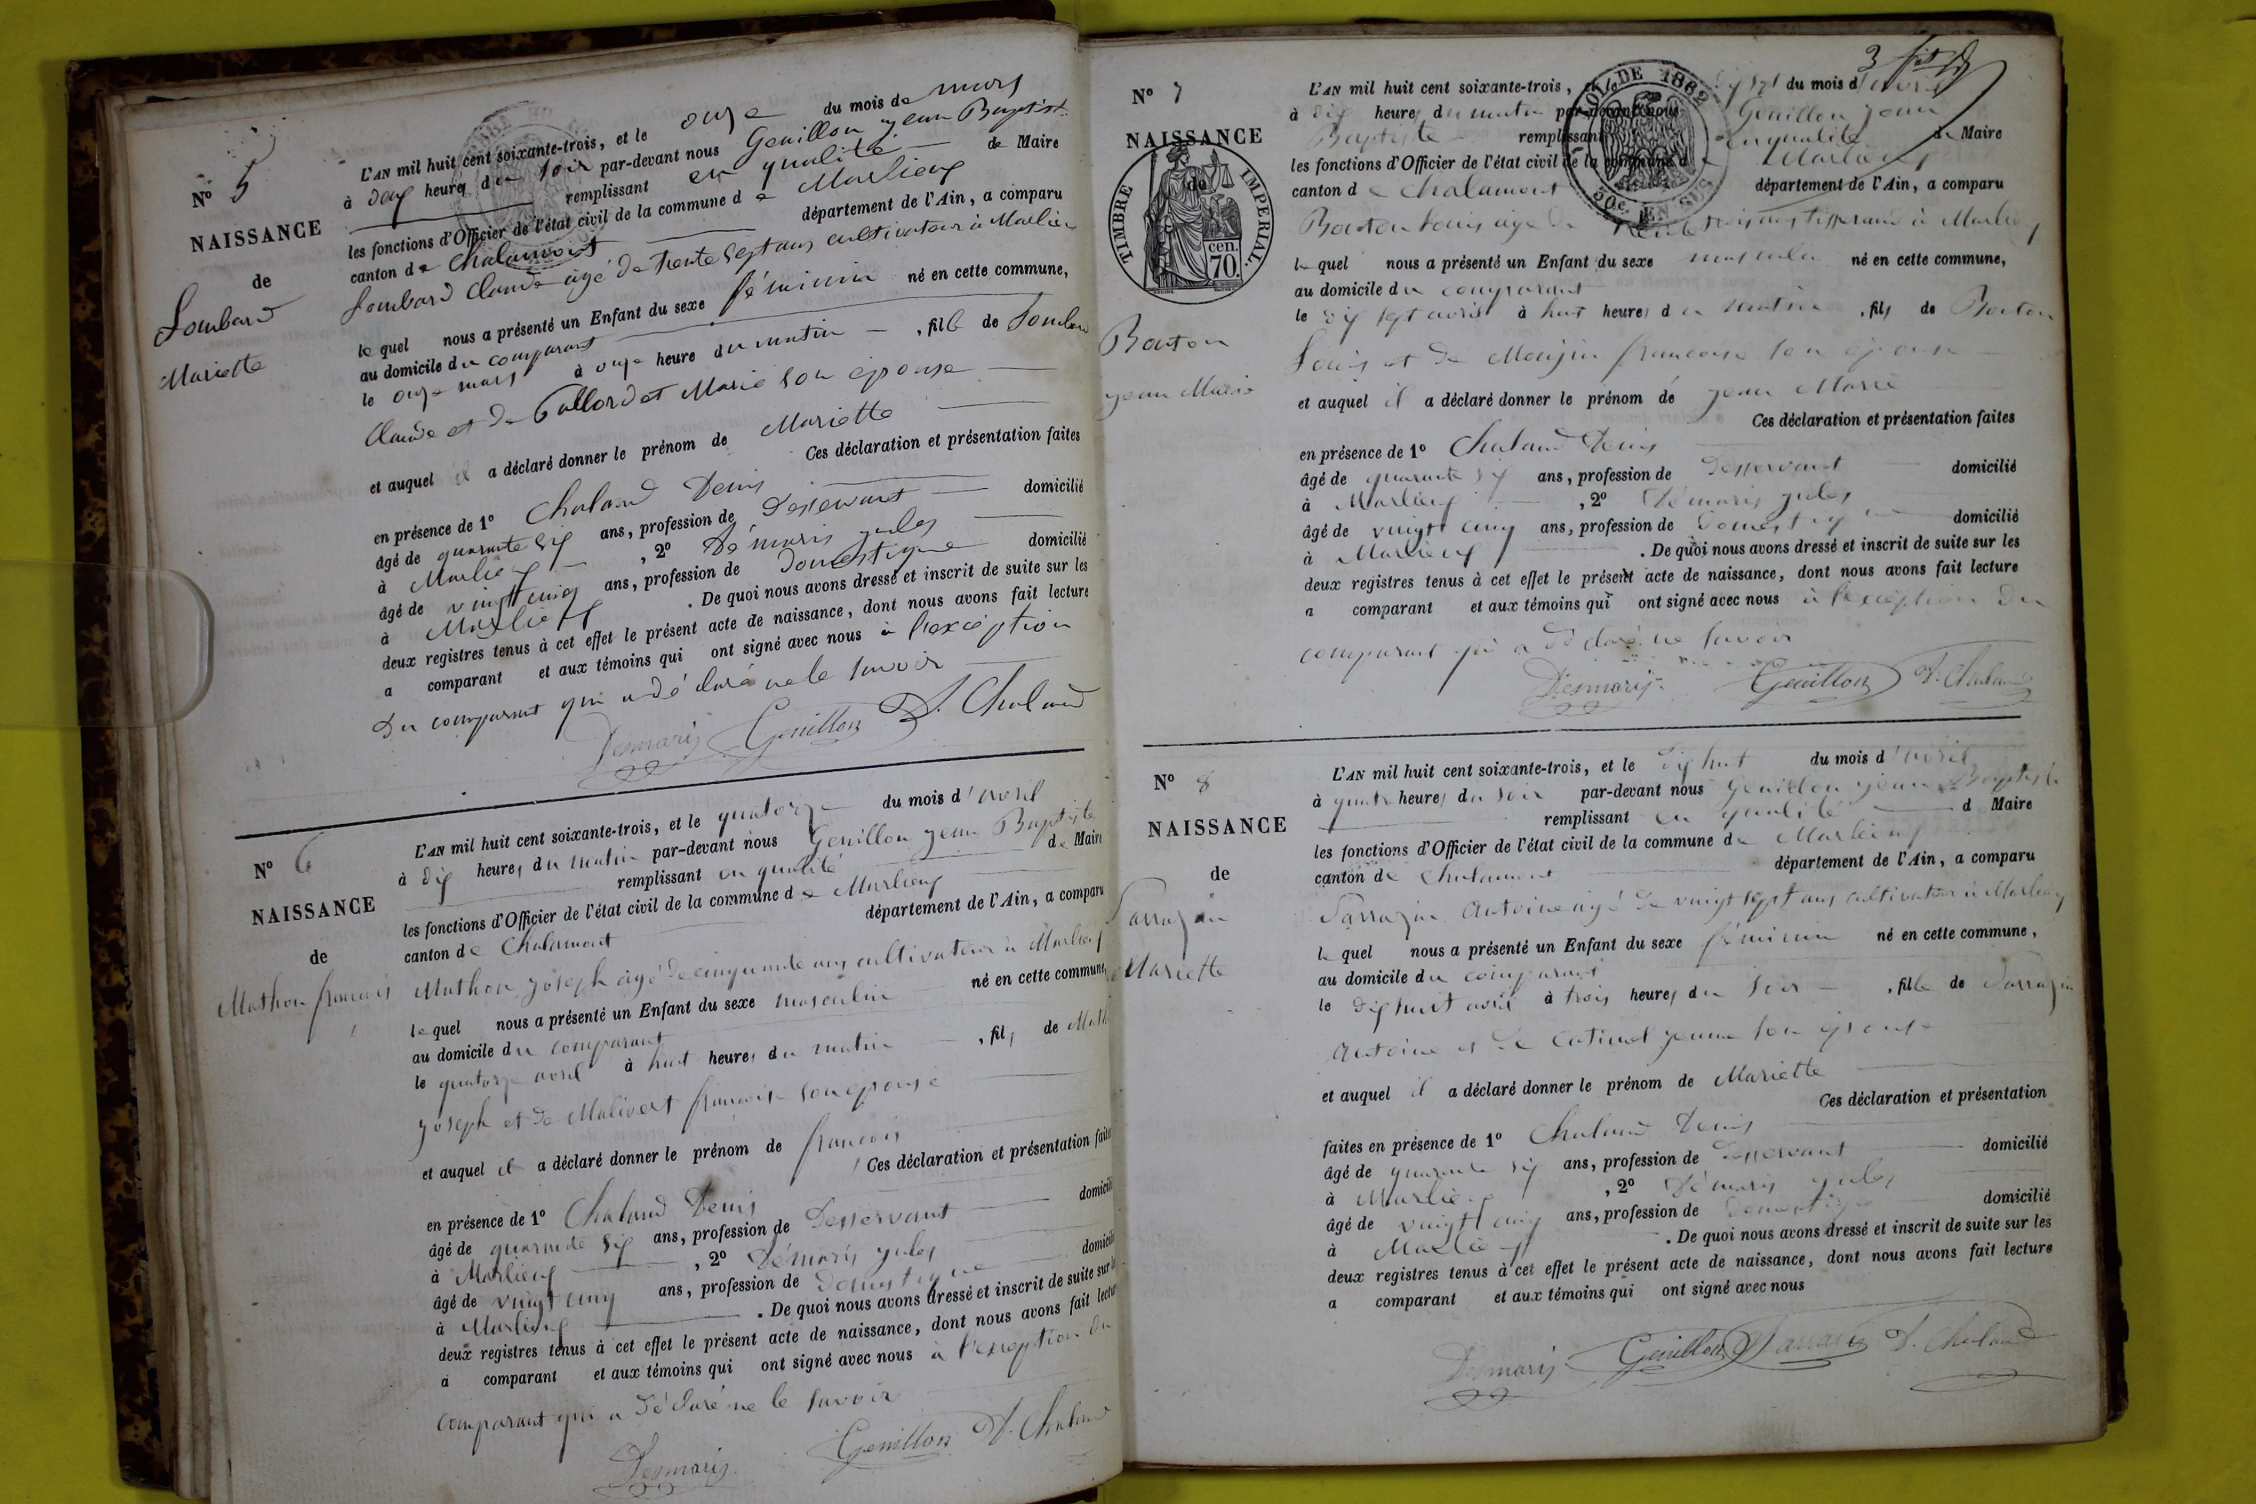 N° 5
NAISSANCE
de
Lombard
Mariette
L'AN mil huit cent soixante-trois, et le onze du mois de mars
à deux heures du soir par-devant nous Genillon jean Baptiste
remplissant en qualité de Maire
les fonctions d'Officier de l'état civil de la commune de Marlieux
canton de Chalamont département de l'Ain, a comparu
Lombard Claude agé de trente sept ans cultivateur à Marlieux
lequel nous a présenté un Enfant du sexe féminin né en cette commune,
au domicile du comparant
le onze mars à onze heure du matin, fille de Lombard
Claude et de Marie son épouse
et auquel il a déclaré donner le prénom de Mariette
Ces déclaration et présentation faites
en présence de 1° Chaland Denis
âgé de quarante six ans, profession de Desservant domicilié
à Marlieux, 2° Démaris jules
âgé de vingt cinq ans, profession de domestique domicilié
à Marlieux. De quoi nous avons dressé et inscrit de suite sur les
deux registres tenus à cet effet le présent acte de naissance, dont nous avons fait lecture
a comparant et aux témoins qui ont signé avec nous à l'exception
du comparant qui a déclaré ne le savoir
Desmaris Genillon D. Chaland
N° 6
NAISSANCE
de
Mathon francois
L'AN mil huit cent soixante-trois, et le quatorze du mois d'avril
à dix heures du matin par-devant nous Genillon jean Baptiste
remplissant en qualité de Maire
les fonctions d'Officier de l'état civil de la commune de Marlieux
canton de Chalamont département de l'Ain, a comparu
Mathon joseph agé de cinquante ans cultivateur à Marlieux
lequel nous a présenté un Enfant du sexe masculin né en cette commune,
au domicile du comparant
le quatorze avril à huit heures du matin, fils de Math
joseph et de Malivert francoise son épouse
et auquel il a déclaré donner le prénom de francois
Ces déclaration et présentation faites
en présence de 1° Chaland Denis
âgé de quarante six ans, profession de Desservant domicilié
à Marlieux, 2° Démaris jules
âgé de vingt cinq ans, profession de Domestique domicilié
à Marlieux. De quoi nous avons dressé et inscrit de suite sur les
deux registres tenus à cet effet le présent acte de naissance, dont nous avons fait lecture
a comparant et aux témoins qui ont signé avec nous à l'exception du
comparant qui a déclaré ne le savoir
Desmaris Genillon D. Chaland
3
N° 7
NAISSANCE
de
TIMBRE IMPERIAL
cen. 70.
Bouton
jean Marie
1862
50c. EN SUS
L'AN mil huit cent soixante-trois, sept du mois d'avril
à dix heures du matin par-devant nous Genillon jean
Baptiste remplissant en qualité de Maire
les fonctions d'Officier de l'état civil de la commune de Marlieux
canton de Chalamont département de l'Ain, a comparu
Bouton Louis agé de trente trois ans tisserand à Marlieux
lequel nous a présenté un Enfant du sexe masculin né en cette commune,
au domicile du comparant
le dix sept avril à huit heures du matin, fils de Bouton
Louis et de francoise son épouse
et auquel il a déclaré donner le prénom de jean Marie
Ces déclaration et présentation faites
en présence de 1° Chaland Denis
âgé de quarante six ans, profession de Desservant domicilié
à Marlieux, 2° Démaris jules
âgé de vingt cinq ans, profession de Domestique domicilié
à Marlieux. De quoi nous avons dressé et inscrit de suite sur les
deux registres tenus à cet effet le présent acte de naissance, dont nous avons fait lecture
a comparant et aux témoins qui ont signé avec nous à l'exception du
comparant qui a déclaré ne savoir
Desmaris Genillon D. Chaland
N° 8
NAISSANCE
de
Sarrazin
Mariette
L'AN mil huit cent soixante-trois, et le dix huit du mois d'avril
à quatre heures du soir par-devant nous Genillon jean Baptiste
remplissant en qualité d Maire
les fonctions d'Officier de l'état civil de la commune de Marlieux
canton de Chalamont département de l'Ain, a comparu
Sarrazin Antoine agé de vingt sept ans cultivateur à Marlieux
lequel nous a présenté un Enfant du sexe féminin né en cette commune,
au domicile du comparant
le dix huit avril à trois heures du soir, fille de Sarrazin
Antoine et de Catinet jeanne son épouse
et auquel il a déclaré donner le prénom de Mariette
Ces déclaration et présentation
faites en présence de 1° Chaland Denis
âgé de quarante six ans, profession de Desservant domicilié
à Marlieux, 2° Démaris jules
âgé de vingt cinq ans, profession de Domestique domicilié
à Marlieux. De quoi nous avons dressé et inscrit de suite sur les
deux registres tenus à cet effet le présent acte de naissance, dont nous avons fait lecture
a comparant et aux témoins qui ont signé avec nous
Desmaris Genillon Sarrazin D. Chaland